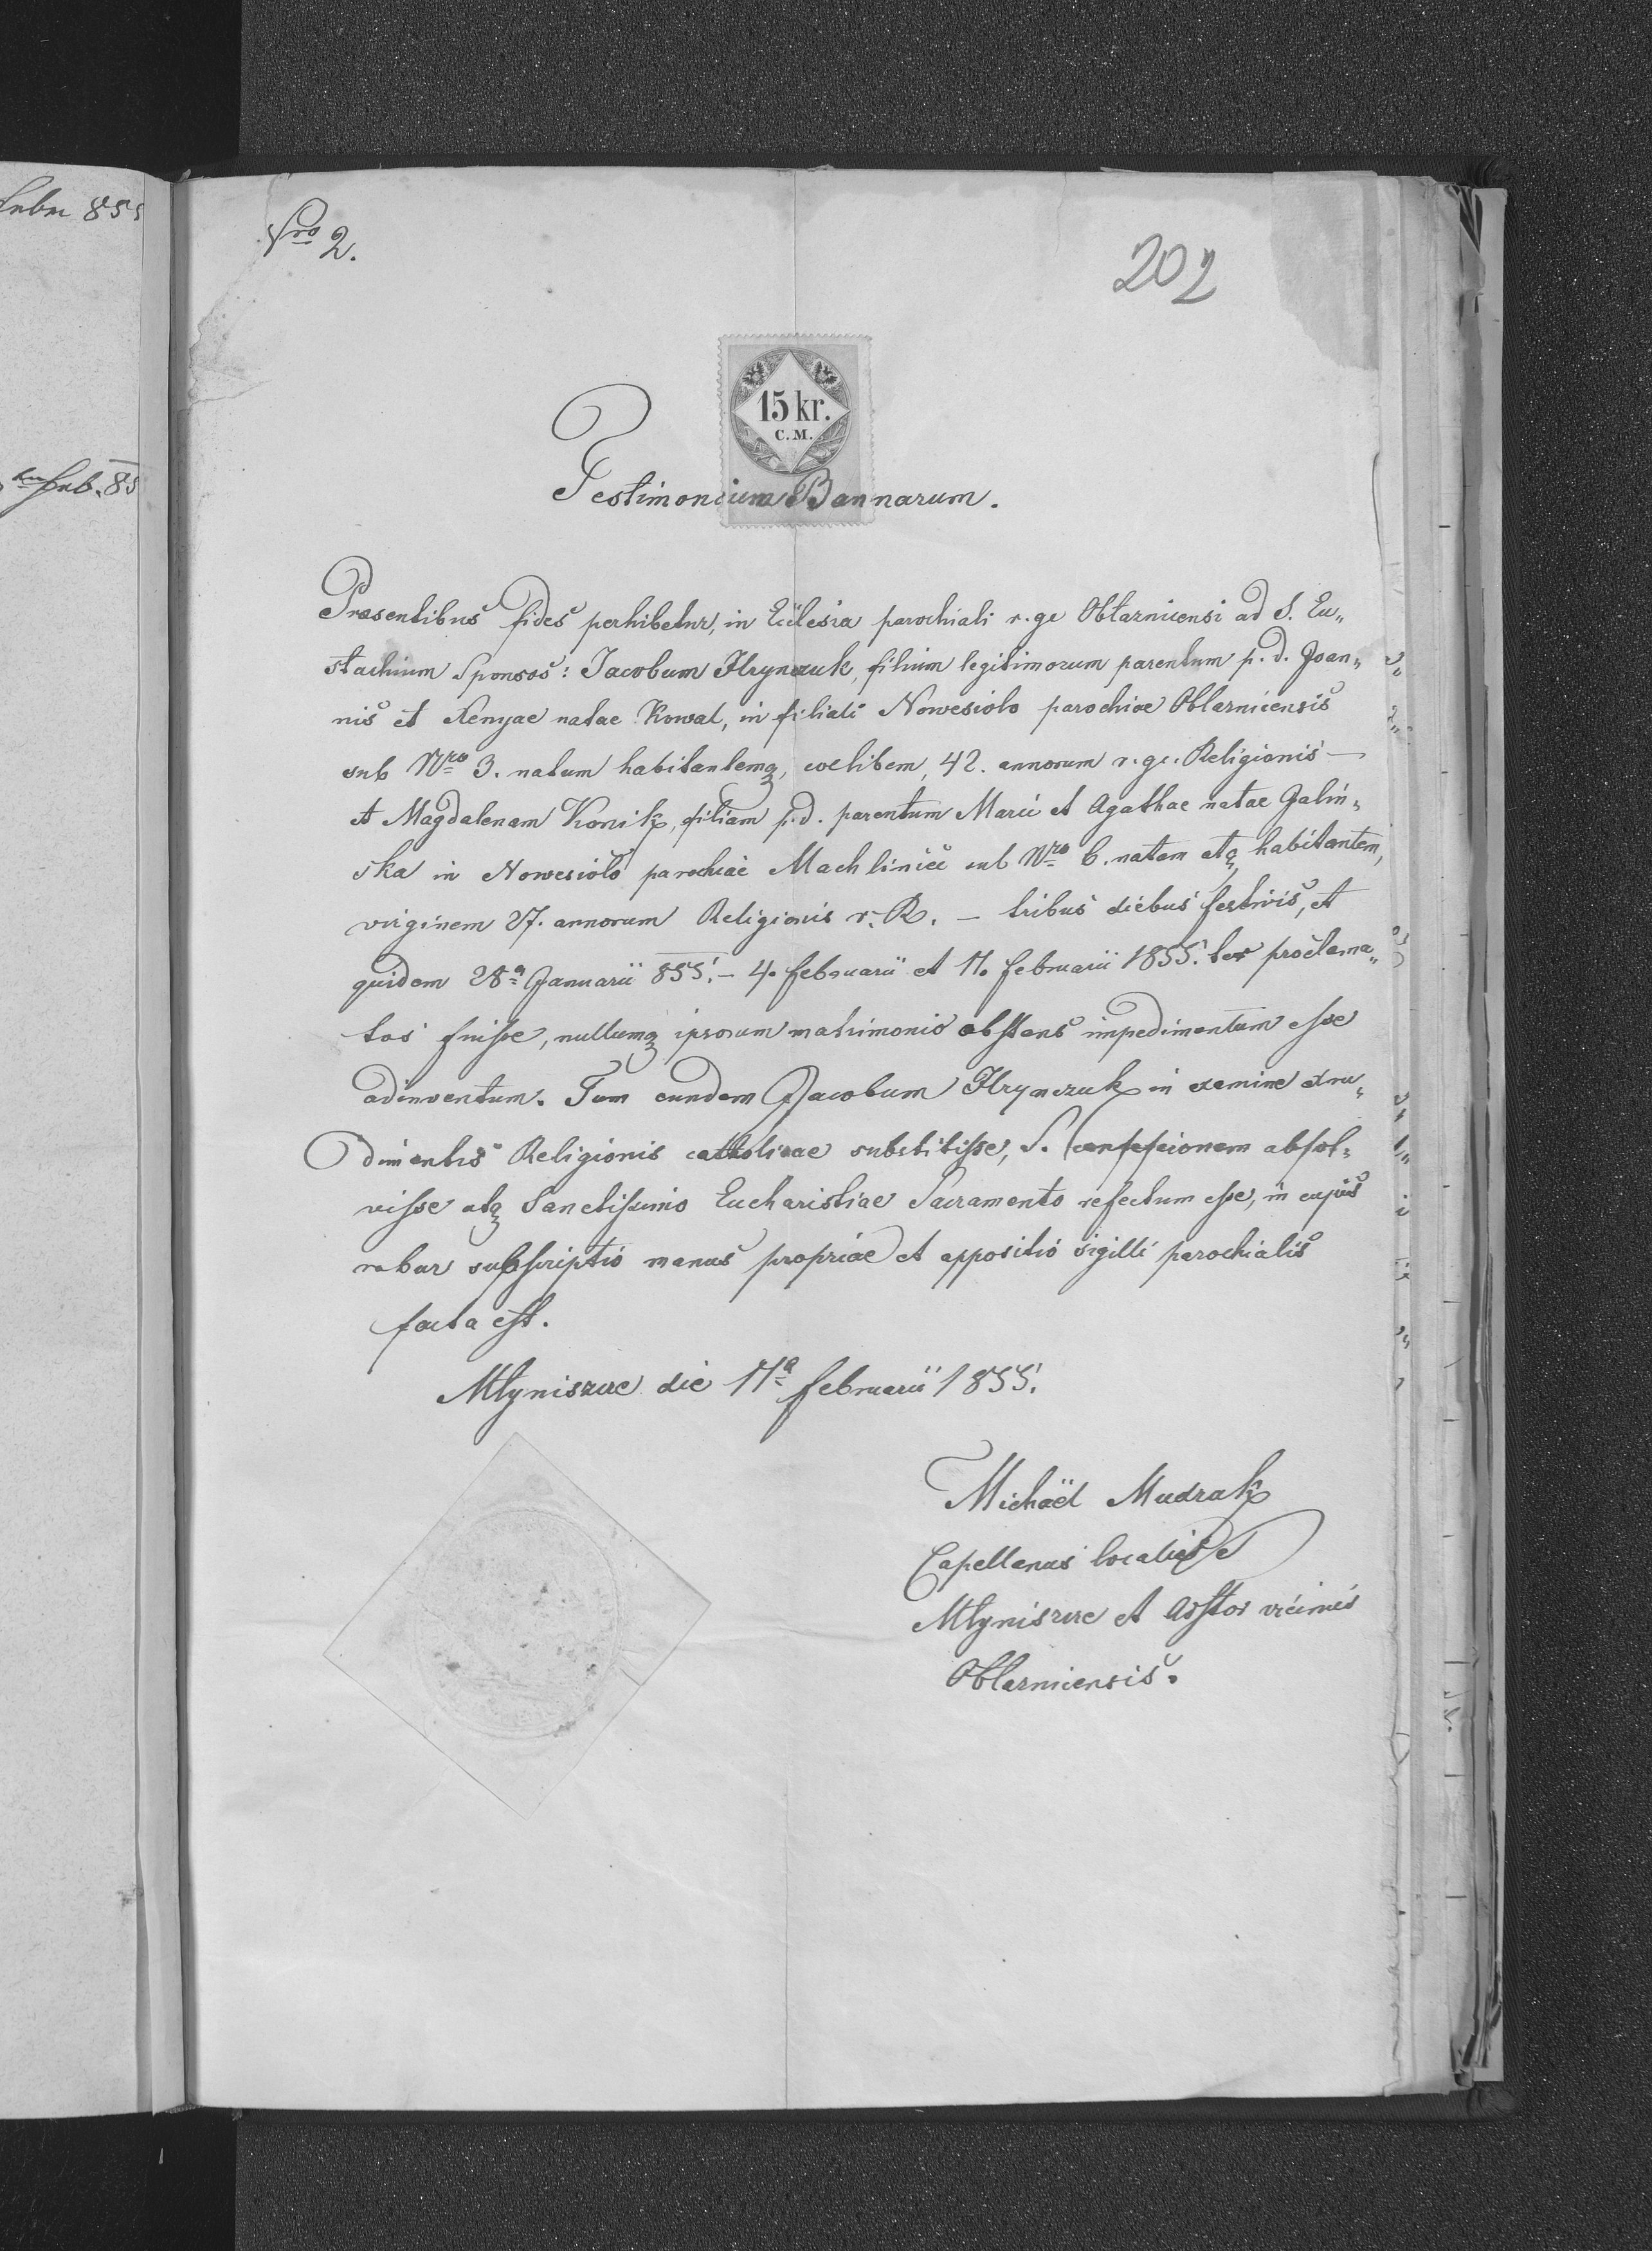 Nro 2.
202
15 kr.
C.M.
Testimonium Bannarum.
Præsentibus fides perhibetur, in Ecclesia parochiali r. gr. Obłaznicensi ad S. Eu„
stachium Sponsos: Jacobum Hrynczuk, filium legitimorum parentum p. d. Joan„
nis et Xenyae natae Kowal, in filiali Nowesioło parochiae Obłaznicensis
sub Nro 3. natum habitantemq, coelibem, 42. annorum r. gr. Religionis —
et Magdalenam Konik, filiam p. d. parentum Marci et Agathae natae Galin„
ska in Nowesioło parochiae Machliniec sub Nro 6. natam atq habitantem,
virginem 27. annorum Religionis r. R. — tribus diebus festivis, et
quidem 28a Januarii 855. — 4. februarii et 11. februarii 1855. ter proclama„
tos fuisse, nullumq ipsorum matrimonio obstans impedimentum esse
adinventum. Tum eundem Jacobum Hrynczuk in examine e ru„
dimentis Religionis catholicae substitisse, S. confessionem absol„
visse atq Sanctissimo Eucharistiae Sacramento refectum esse, in cujus
robur subscriptio manus propriae et appositio sigilli parochialis
facta est.
Młyniszcze die 11a februarii 1855.
Michaël Mudrak
Capellanus localis
Młyniszcze et Asstor vicinus
Obłaznicensis.